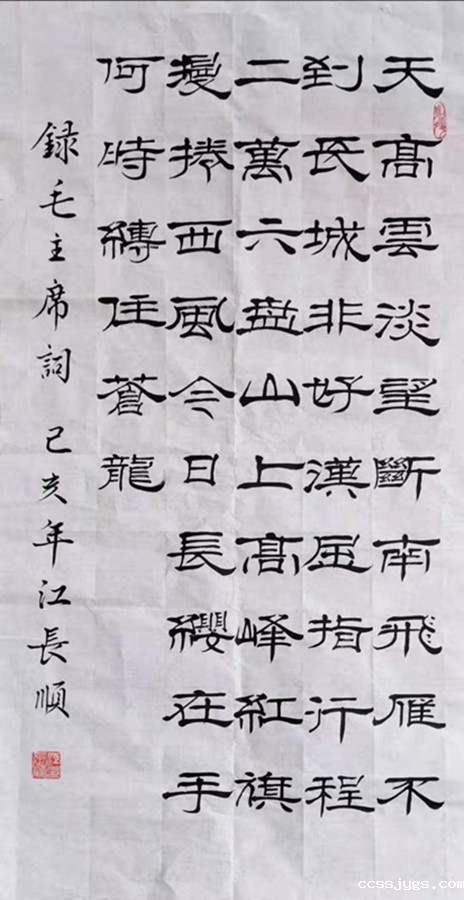 天高雲淡望斷南飛雁不
到長城非好漢屈指行程
二萬六盤山上高峰紅旗
漫捲西風今日長纓在手
何時縛住蒼龍
錄毛主席詞 己亥年江長順
ccssjygs.com